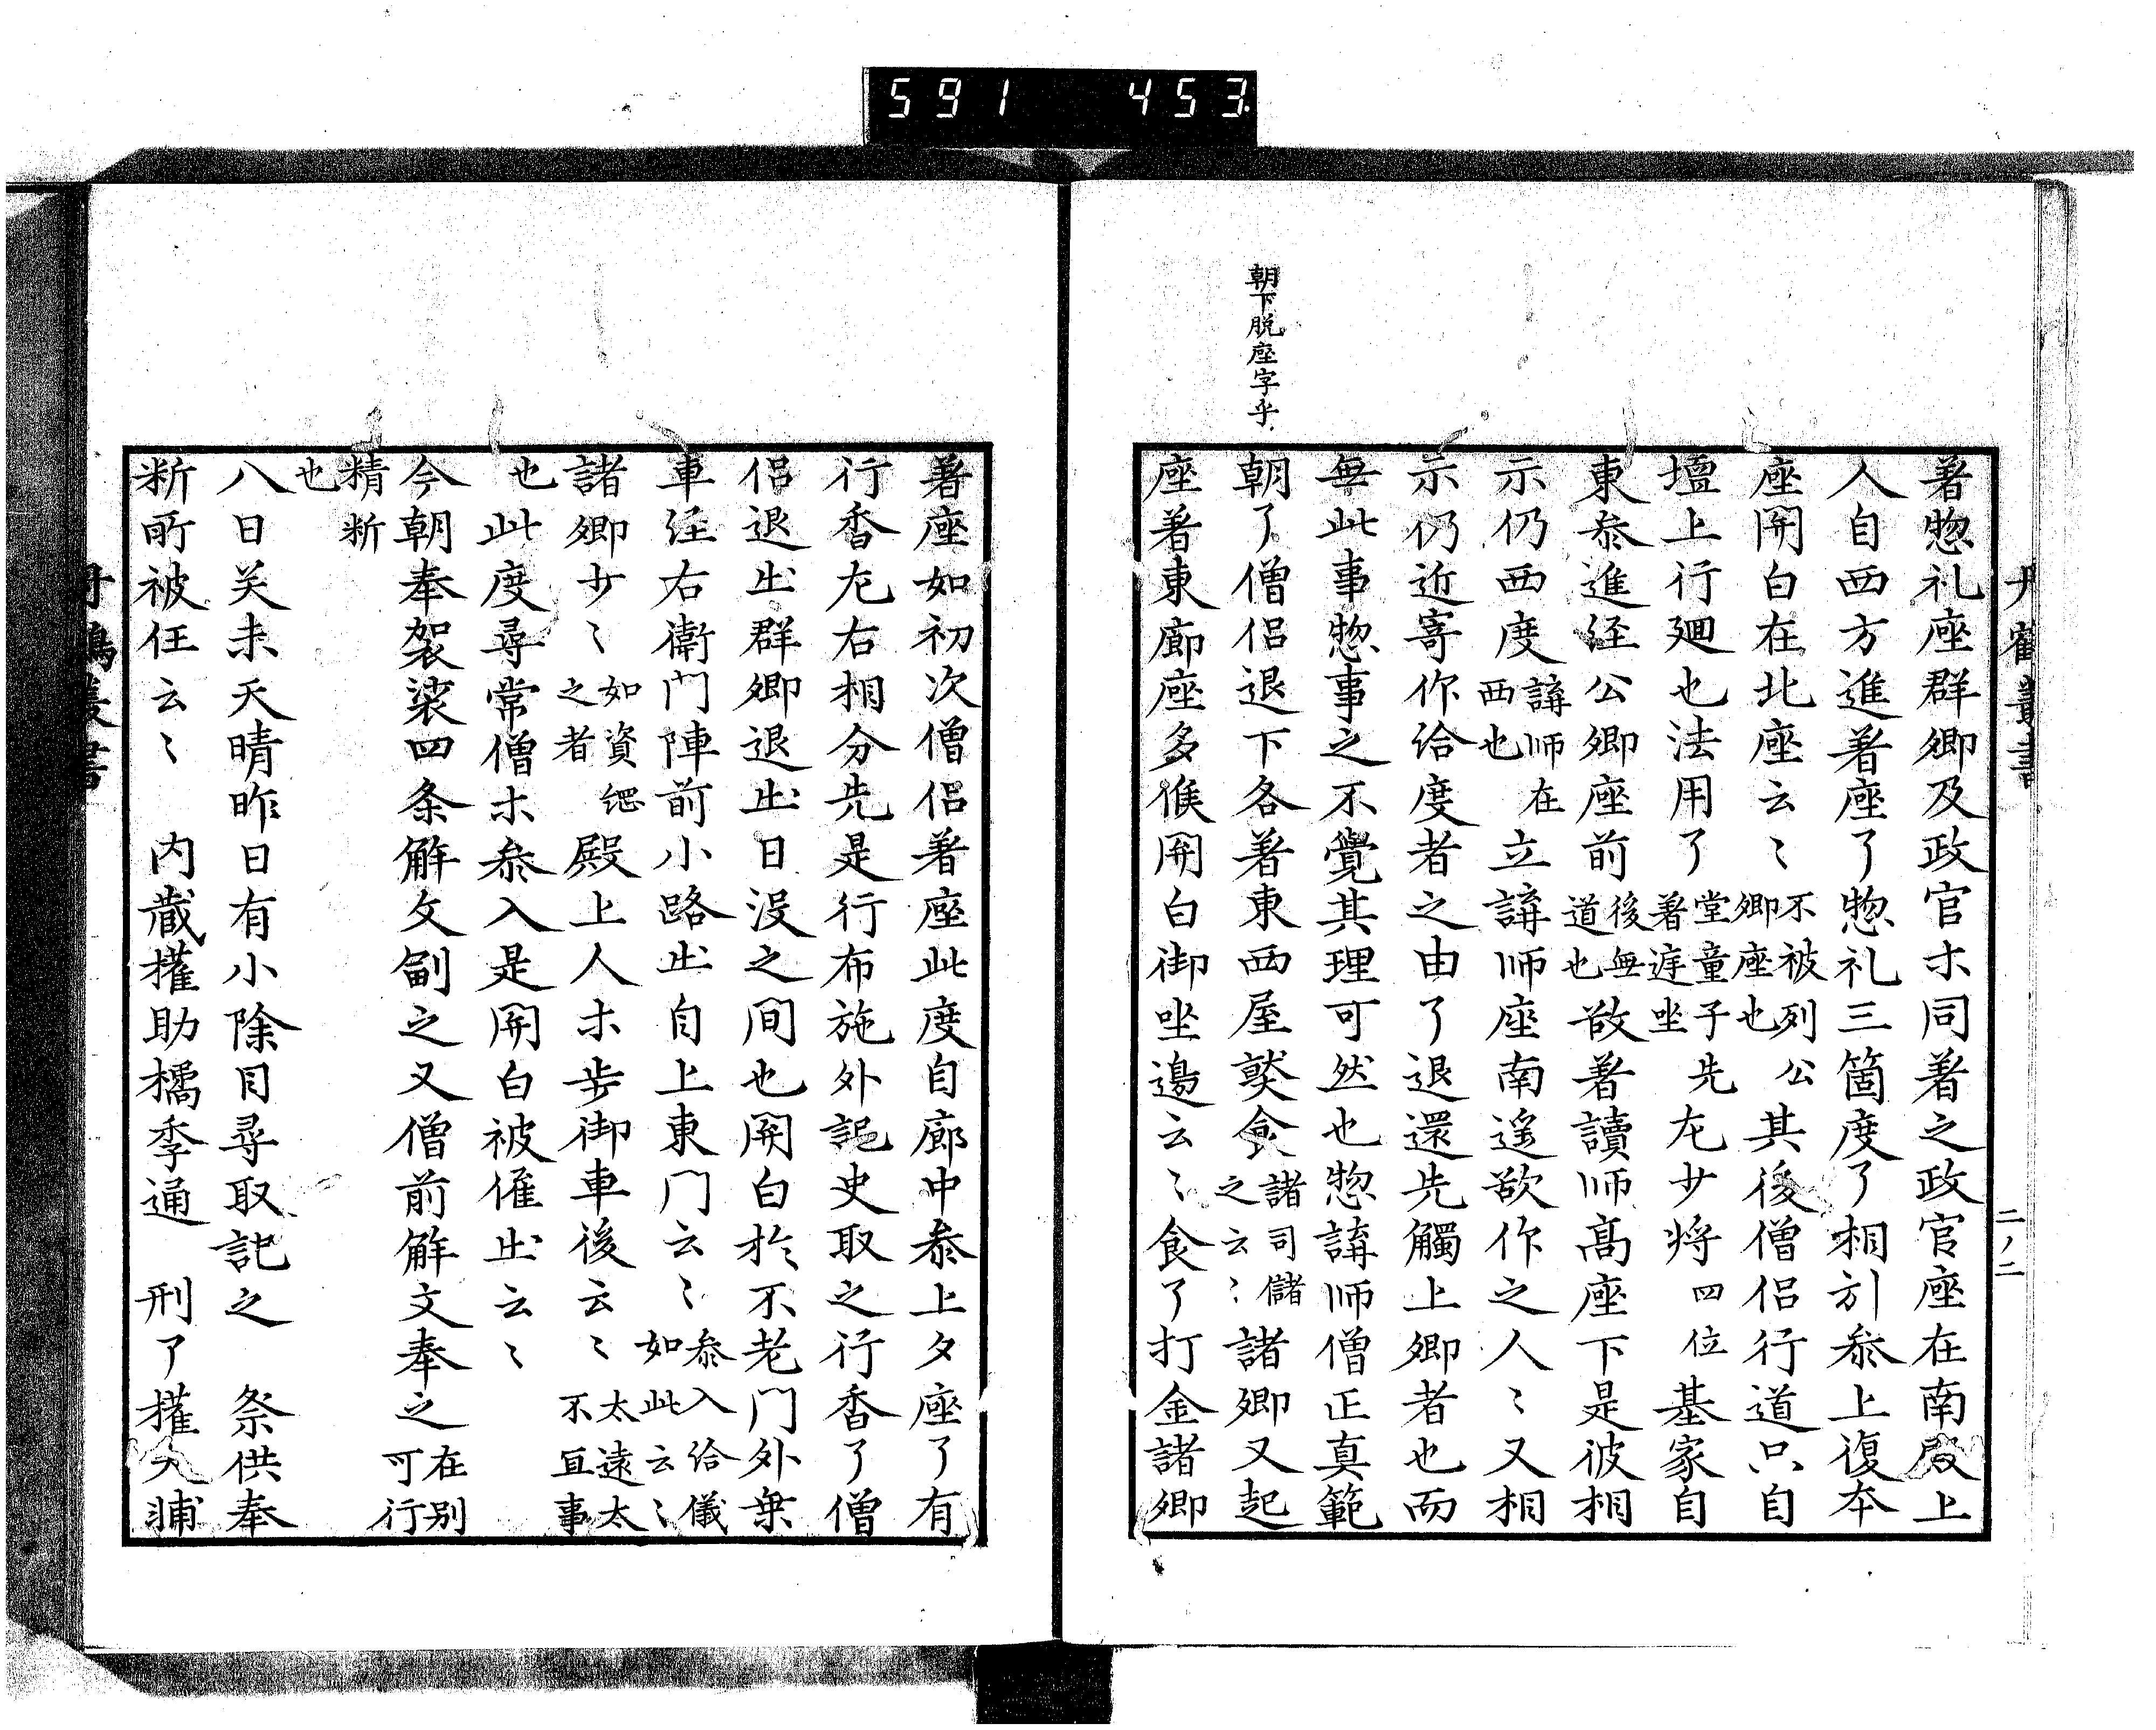 591 453
丹鶴叢書
二ノ二
朝下脱座字乎
著惣礼座群卿及政官ホ同著之政官座在南殿上
人自西方進著座了惣礼三箇度了相引参上復本
座関白在北座云〻不被列公卿座也其後僧侶行道只自
壇上行廻也法用了堂童子先著庭坐左少将四位基家自
東参進経公卿座前後無道也欲著讀师髙座下是彼相
示仍西度講师在西也立講师座南遥欲作之人〻又相
示仍近寄作給度者之由了退還先觸上卿者也而
無此事惣事之不覺其理可然也惣講师僧正真範
朝了僧侶退下各著東西屋爕食諸司儲之云〻諸卿又起
座著東廊座多候関白御坐邊云〻食了打金諸卿
著座如初次僧侶著座此度自廊中参上夕座了有
行香左右相分先是行布施外記史取之行香了僧
侶退出群卿退出日没之間也関白於不老門外乗
車経右衛門陣前小路出自上東門云〻参入給儀如此云〻
諸卿少〻如資綱之者殿上人ホ歩御車後云〻太遠太不宜事
也此度尋常僧ホ参入是関白被催出云〻
今朝奉袈裟四条解文副之又僧前解文奉之在别可行
精断
也
八日癸未天晴昨日有小除目尋取記之　祭供奉
断所被任云〻　内蔵権助橘季通　刑了権大輔
丹鶴叢書